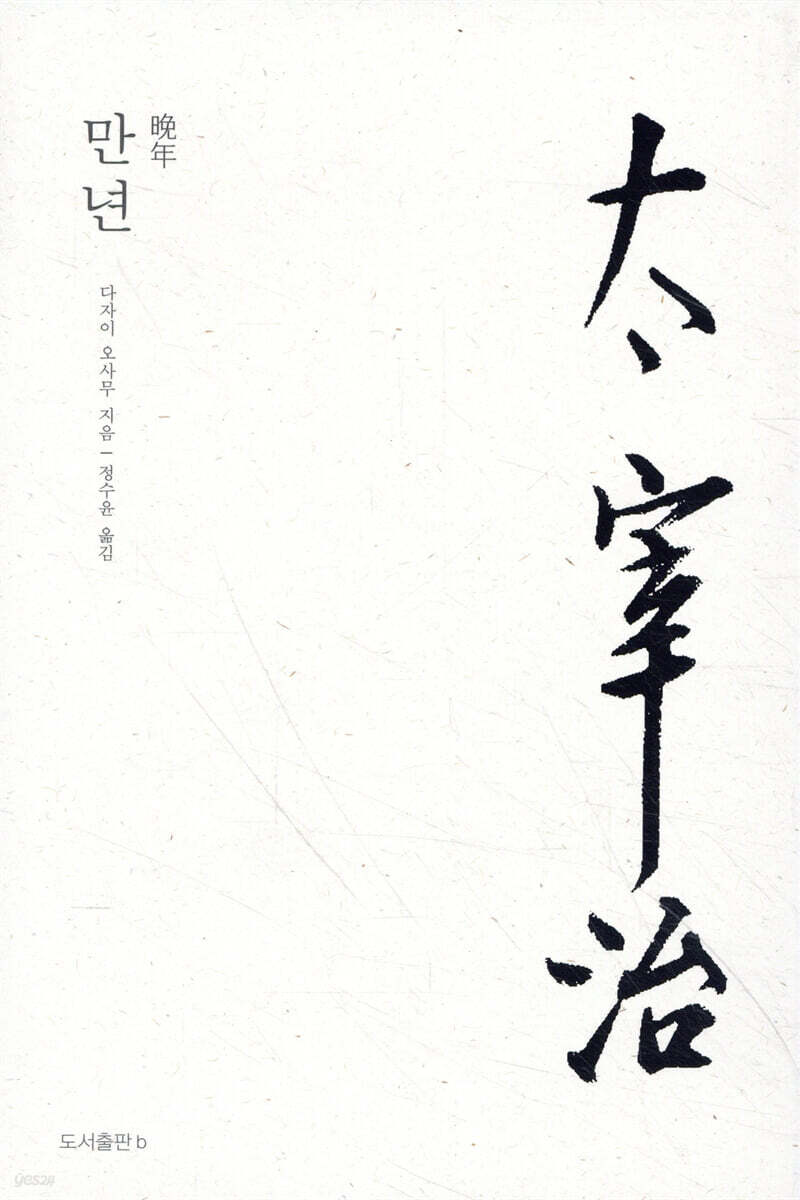 太宰治
晩年
만년
다자이 오사무 지음 ─ 정수윤 옮김
도서출판 b
yes24